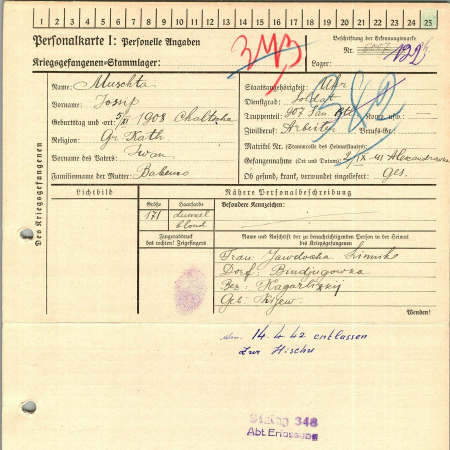 1 2 3 4 5 6 7 8 9 10 11 12 13 14 15 16 17 18 19 20 21 22 23 24 25
Personalkarte I: Personelle Angaben
Kriegsgefangenen-Stammlager:
Beschriftung der Erkennungsmarke
Nr.
Lager:
Des Kriegsgefangenen
Name: Muschta
Vorname: Jossip
Geburtstag und -ort: 5/XI 1908 Chaltscha
Religion: Gr. Kath
Vorname des Vaters: Iwan
Familienname der Mutter: Babenso
Staatsangehörigkeit: Ukr
Dienstgrad: Soldat
Truppenteil: 907 San. Komp. usw.:
Zivilberuf: Arbeiter Berufs-Gr.:
Matrikel Nr. (Stammrolle des Heimatstaates):
Gefangennahme (Ort und Datum): 2/IX-41 Alexandrowka
Ob gesund, krank, verwundet eingeliefert: ges.
Lichtbild
Nähere Personalbeschreibung
Größe
Haarfarbe
Besondere Kennzeichen:
171
dunkel
blond
Fingerabdruck
des rechten! Zeigefingers
Name und Anschrift der zu benachrichtigenden Person in der Heimat
des Kriegsgefangenen
Frau Jawdocha
Dorf: Bindjugowka
Bez: Kagarlizkij
Geb: Kijew.
Wenden!
14.4.42 entlassen
Zur
Stalag 346
Abt. Erfassung